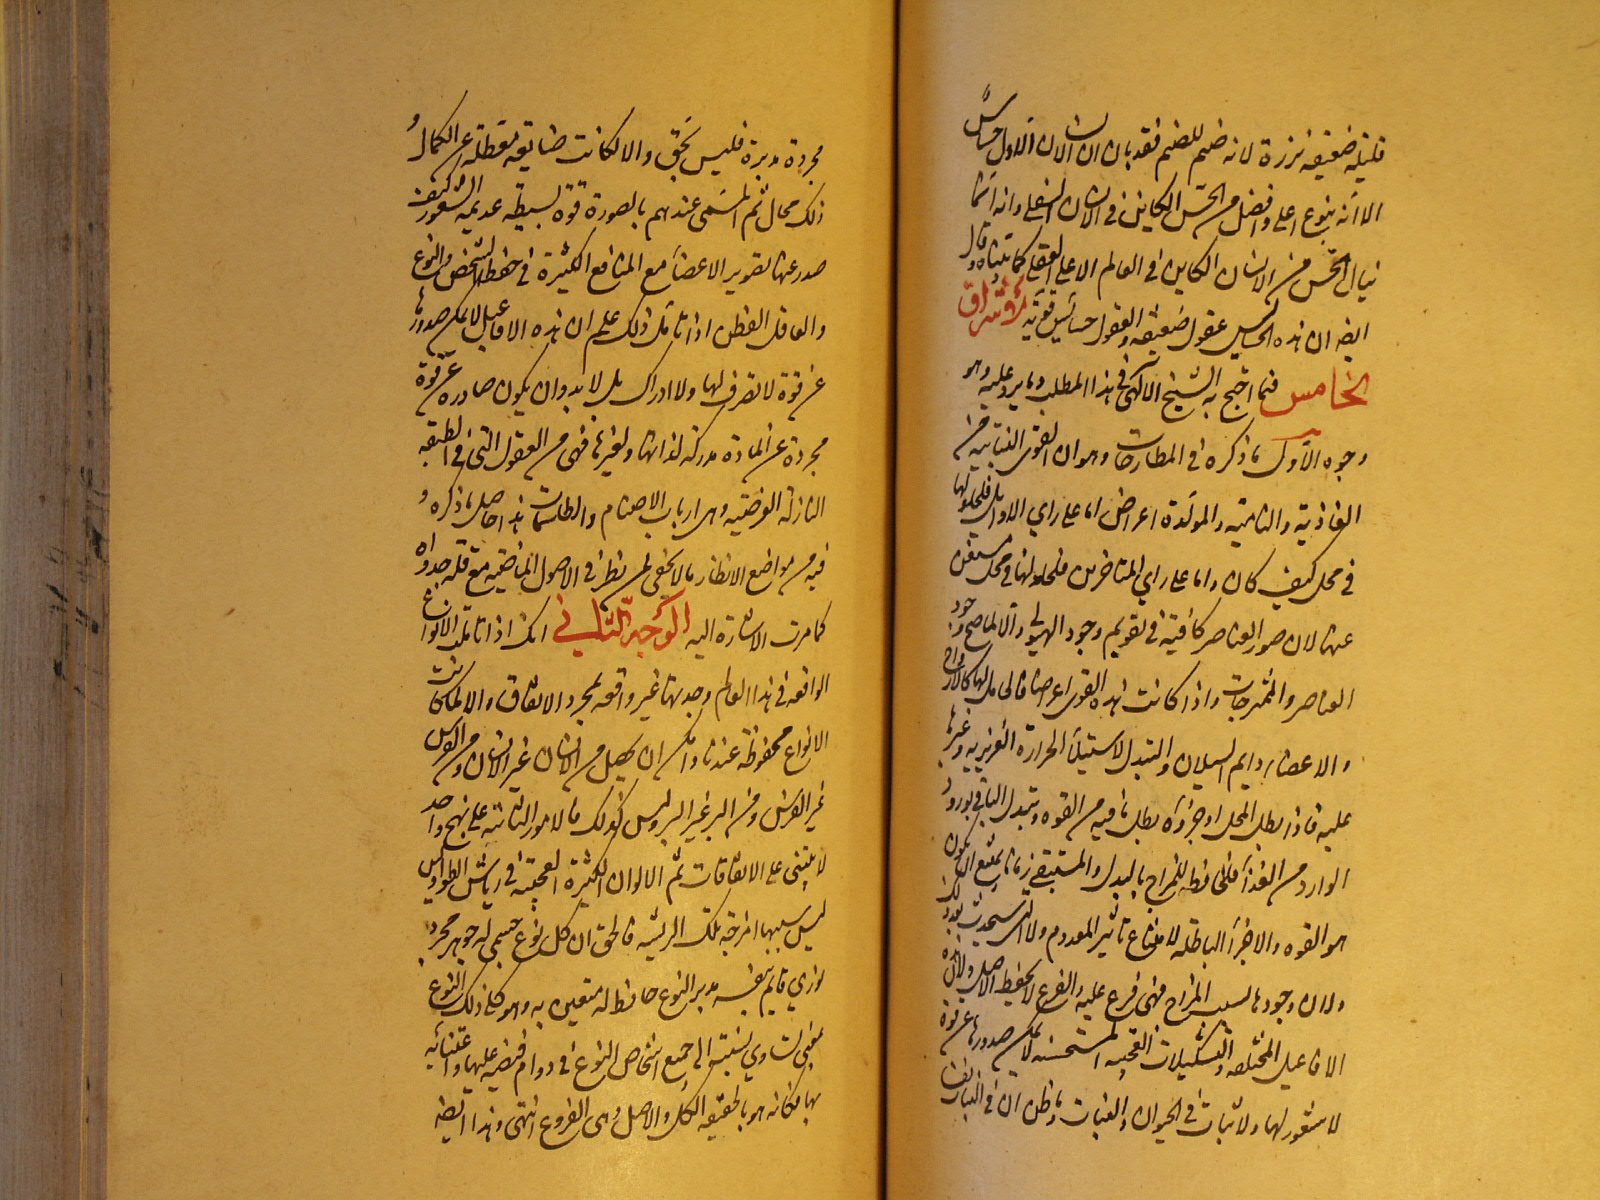 قليلة ضعيفة نزرة لانه صنم للصنم فقد بان ان الانسان الاول حساس
الا انه بنوع اعلى وافضل من الحس الكاين في الانسان السفلي وانه انما
ينال الحس من الانسان الكاين في العالم الاعلى العقلي كما بيناه وقال
ايضا ان هذه الحسايس عقول ضعيفة والعقول حسايس قوية الاشراق
الخامس فيما احتج به الشيخ الالهي في هذا المطلب وما يرد عليه وهو
وجوه الاول ما ذكره في المطارحات وهو ان القوى النباتية من
الغاذية والنامية والمولدة اعراض اما على راي الاوايل فلحلولها
في محل كيف كان واما على راي المتاخرين فلحلولها في محل مستغن
عنها لان صور العناصر كافية في تقويم وجود الهيولى والا لما صح وجود
العناصر والممتزجات واذا كانت هذه القوى اعراضا فالحامل لها كالارواح
والاعضاء دايم السيلان والتبدل لاستيلاء الحرارة الغريزية وغيرها
عليه فاذا بطل المحل او جزؤه بطل ما فيه من القوه وتبدل الباقي بورود
الوارد من الغذاء فالحافظ للمزاج بالبدل والمستبقي زمانا يمتنع ان يكون
هو القوه والاجزاء الباطلة لامتناع تاثير المعدوم ولا التي ستحدث بعد ذلك
ولان وجودها بسبب المزاج فهي فرع عليه والفرع لا يحفظ الاصل ولان هذه
الافاعيل المختلفة والتشكيلات العجيبة المستحسنة لا يمكن صدورها عن قوة
لا شعور لها ولا ثبات في الحيوان والنبات وما ظن ان في النبات نفسا
مجردة مدبرة فليس بحق والا لكانت ضايعة معطلة عن الكمال و
ذلك محال ثم المسمى عندهم بالمصورة قوة بسيطة عديمة الشعور كيف
صدر عنها تصوير الاعضاء مع المنافع الكثيرة في حفظ الشخص والنوع
والعاقل الفطن اذا تامل ذلك علم ان هذه الافاعيل لا يمكن صدورها
عن قوة لا تصرف لها ولا ادراك بل لا بد وان يكون صادرة عن قوة
مجردة عن المادة مدركة لذاتها ولغيرها فهي من العقول التي في الطبقة
النازلة العرضية وهي ارباب الاصنام والطلسمات هذا حاصل ما ذكره و
فيه من مواضع الانظار ما لا يخفى لمن نظر في الاصول الماضية مع قلة جدواه
كما مرت الاشارة اليه الوجه الثاني انك اذا تاملت الانواع
الواقعة في هذا العالم وجدتها غير واقعة لمجرد الاتفاق والا لما كانت
الانواع محفوظة عندنا وامكن ان يحصل من الانسان غير الانسان ومن الفرس
غير الفرس ومن البر غير البر وليس كذلك فالامور الثابتة على نهج واحد
لا يبتني على الاتفاقات ثم الالوان الكثيرة العجيبة في رياش الطواويس
ليس سببها امزجة تلك الريشة فالحق ان كل نوع جسمي له جوهر مجرد
نوري قايم بنفسه مدبر للنوع حافظ له متعين به وهو كلي ذلك النوع
بمعنى تساوي نسبته الى جميع اشخاص النوع في دوام فيضه عليها واعتنائه
بها فكانه هو بالحقيقة الكل والاصل وهي الفروع انتهى وهذا ايضا